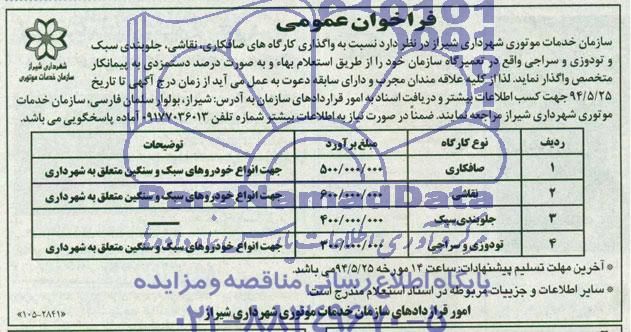 فراخوان عمومی
شهرداری شیراز
سازمان خدمات موتوری
سازمان خدمات موتوری شهرداری شیراز در نظر دارد نسبت به واگذاری کارگاه های صافکاری، نقاشی، جلوبندی سبک
و تودوزی و سراجی واقع در تعمیرگاه سازمان خود را از طریق استعلام بهاء و به صورت درصد دستمزدی به پیمانکار
متخصص واگذار نماید. لذا از کلیه علاقه مندان مجرب و دارای سابقه دعوت به عمل می آید از زمان درج آگهی تا تاریخ
۹۴/۵/۲۵ جهت کسب اطلاعات بیشتر و دریافت اسناد به امور قراردادهای سازمان به آدرس: شیراز، بولوار سلمان فارسی، سازمان خدمات
موتوری شهرداری شیراز مراجعه نمایند. ضمناً در صورت نیاز به اطلاعات بیشتر شماره تلفن ۰۹۱۷۷۰۳۶۰۱۳ آماده پاسخگویی می باشد.
ردیف نوع کارگاه مبلغ برآورد توضیحات
۱ صافکاری ۵۰۰/۰۰۰/۰۰۰ جهت انواع خودروهای سبک و سنگین متعلق به شهرداری
۲ نقاشی ۶۰۰/۰۰۰/۰۰۰ جهت انواع خودروهای سبک و سنگین متعلق به شهرداری
۳ جلوبندی سبک ۴۰۰/۰۰۰/۰۰۰ ——
۴ تودوزی و سراجی ۳۰۰/۰۰۰/۰۰۰ جهت انواع خودروهای سبک و سنگین متعلق به شهرداری
* آخرین مهلت تسلیم پیشنهادات: ساعت ۱۴ مورخه ۹۴/۵/۲۵ می باشد.
* سایر اطلاعات و جزییات مربوطه در اسناد استعلام مندرج است.
امور قراردادهای سازمان خدمات موتوری شهرداری شیراز
«۱۰۵-۲۸۴۱»
ParsNamadData
پایگاه اطلاع رسانی مناقصه و مزایده